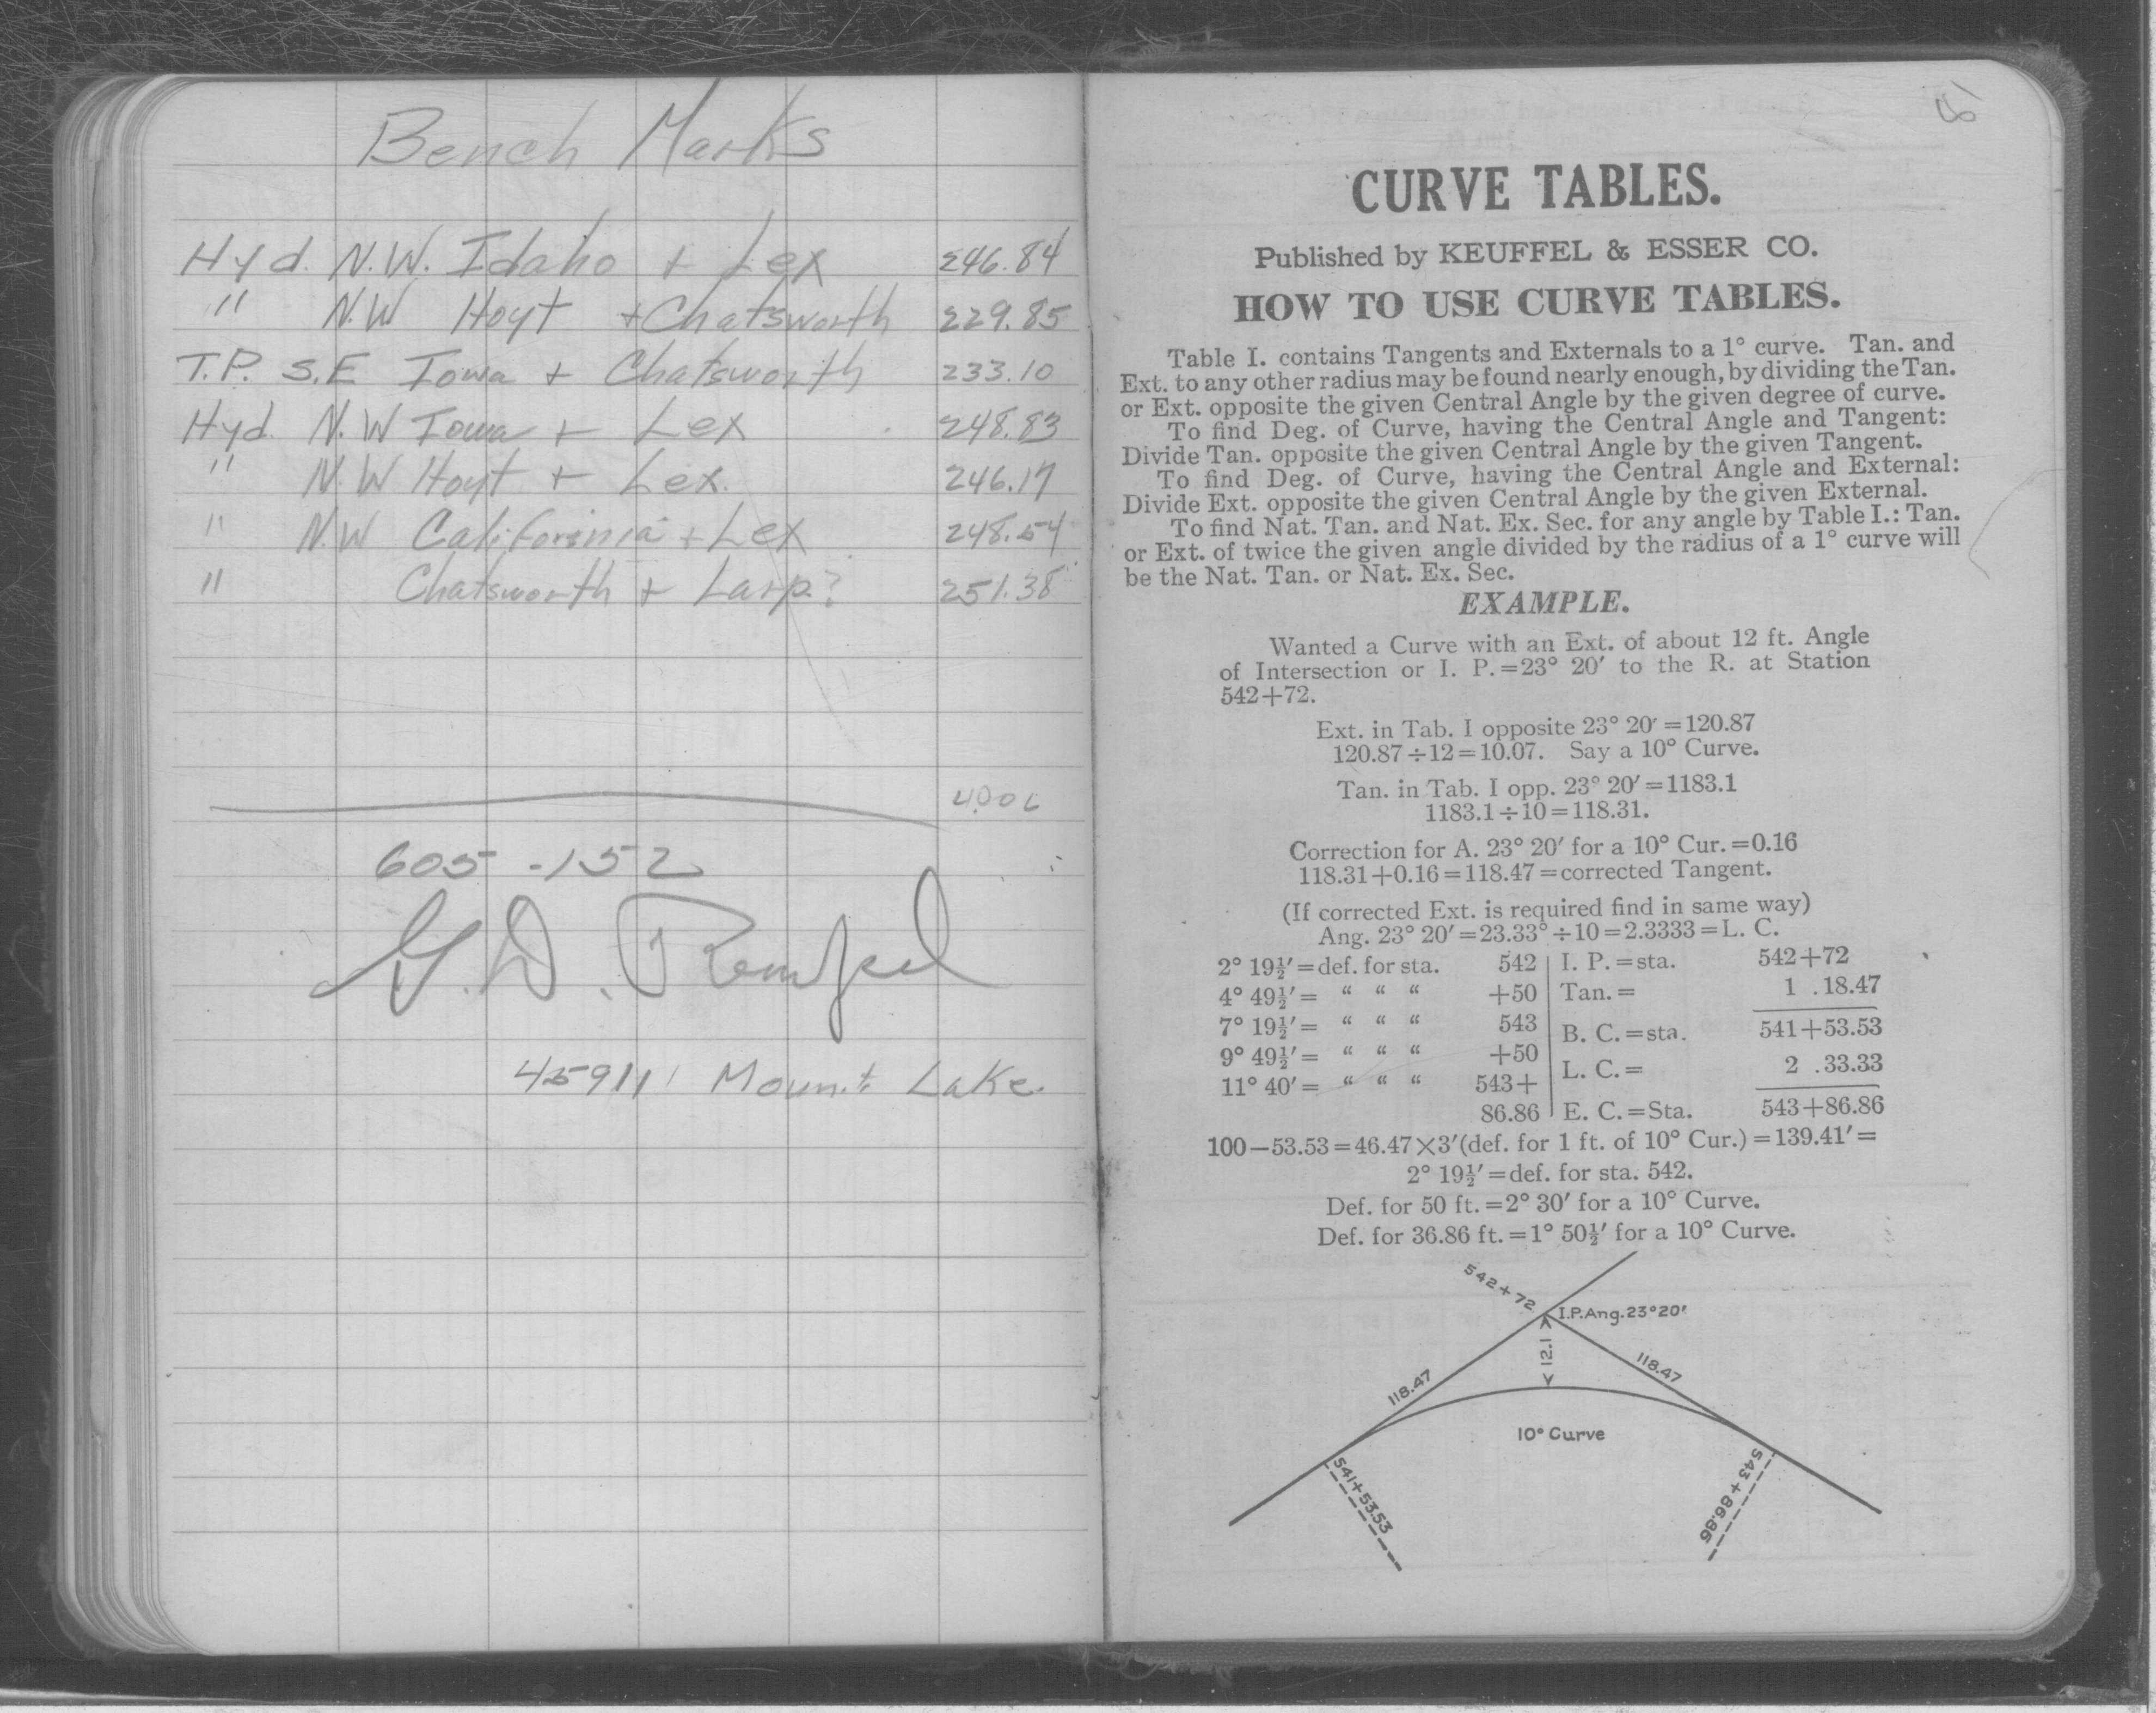 Bench Marks
Hyd. N.W. Idaho + Lex 246.84
" N.W Hoyt + Chatsworth 229.85
T.P. S.E Iowa + Chatsworth 233.10
Hyd. N.W Iowa + Lex 248.83
" N.W Hoyt + Lex. 246.17
" N.W California + Lex 248.54
" Chatsworth + Larp? 251.38
605-152
45911 Mount Lake.
CURVE TABLES.
Published by KEUFFEL & ESSER CO.
HOW TO USE CURVE TABLES.
Table I. contains Tangents and Externals to a 1° curve. Tan. and
Ext. to any other radius may be found nearly enough, by dividing the Tan.
or Ext. opposite the given Central Angle by the given degree of curve.
To find Deg. of Curve, having the Central Angle and Tangent:
Divide Tan. opposite the given Central Angle by the given Tangent.
To find Deg. of Curve, having the Central Angle and External:
Divide Ext. opposite the given Central Angle by the given External.
To find Nat. Tan. and Nat. Ex. Sec. for any angle by Table I.: Tan.
or Ext. of twice the given angle divided by the radius of a 1° curve will
be the Nat. Tan. or Nat. Ex. Sec.
EXAMPLE.
Wanted a Curve with an Ext. of about 12 ft. Angle
of Intersection or I. P.=23° 20′ to the R. at Station
542+72.
Ext. in Tab. I opposite 23° 20′ =120.87
120.87÷12=10.07. Say a 10° Curve.
Tan. in Tab. I opp. 23° 20′=1183.1
1183.1÷10=118.31.
Correction for A. 23° 20′ for a 10° Cur.=0.16
118.31+0.16=118.47=corrected Tangent.
(If corrected Ext. is required find in same way)
Ang. 23° 20′=23.33°÷10=2.3333=L. C.
2° 19½′=def. for sta. 542 | I. P.=sta. 542+72
4° 49½′= " " " +50 | Tan.= 1 .18.47
7° 19½′= " " " 543 | B. C.=sta. 541+53.53
9° 49½′= " " " +50 | L. C.= 2 .33.33
11° 40′= " " " 543+
86.86 | E. C.=Sta. 543+86.86
100−53.53=46.47×3′(def. for 1 ft. of 10° Cur.)=139.41′=
2° 19½′=def. for sta. 542.
Def. for 50 ft.=2° 30′ for a 10° Curve.
Def. for 36.86 ft.=1° 50½′ for a 10° Curve.
542+72
I.P.Ang.23°20′
12.1
118.47
118.47
10° Curve
541+53.53
543+86.86